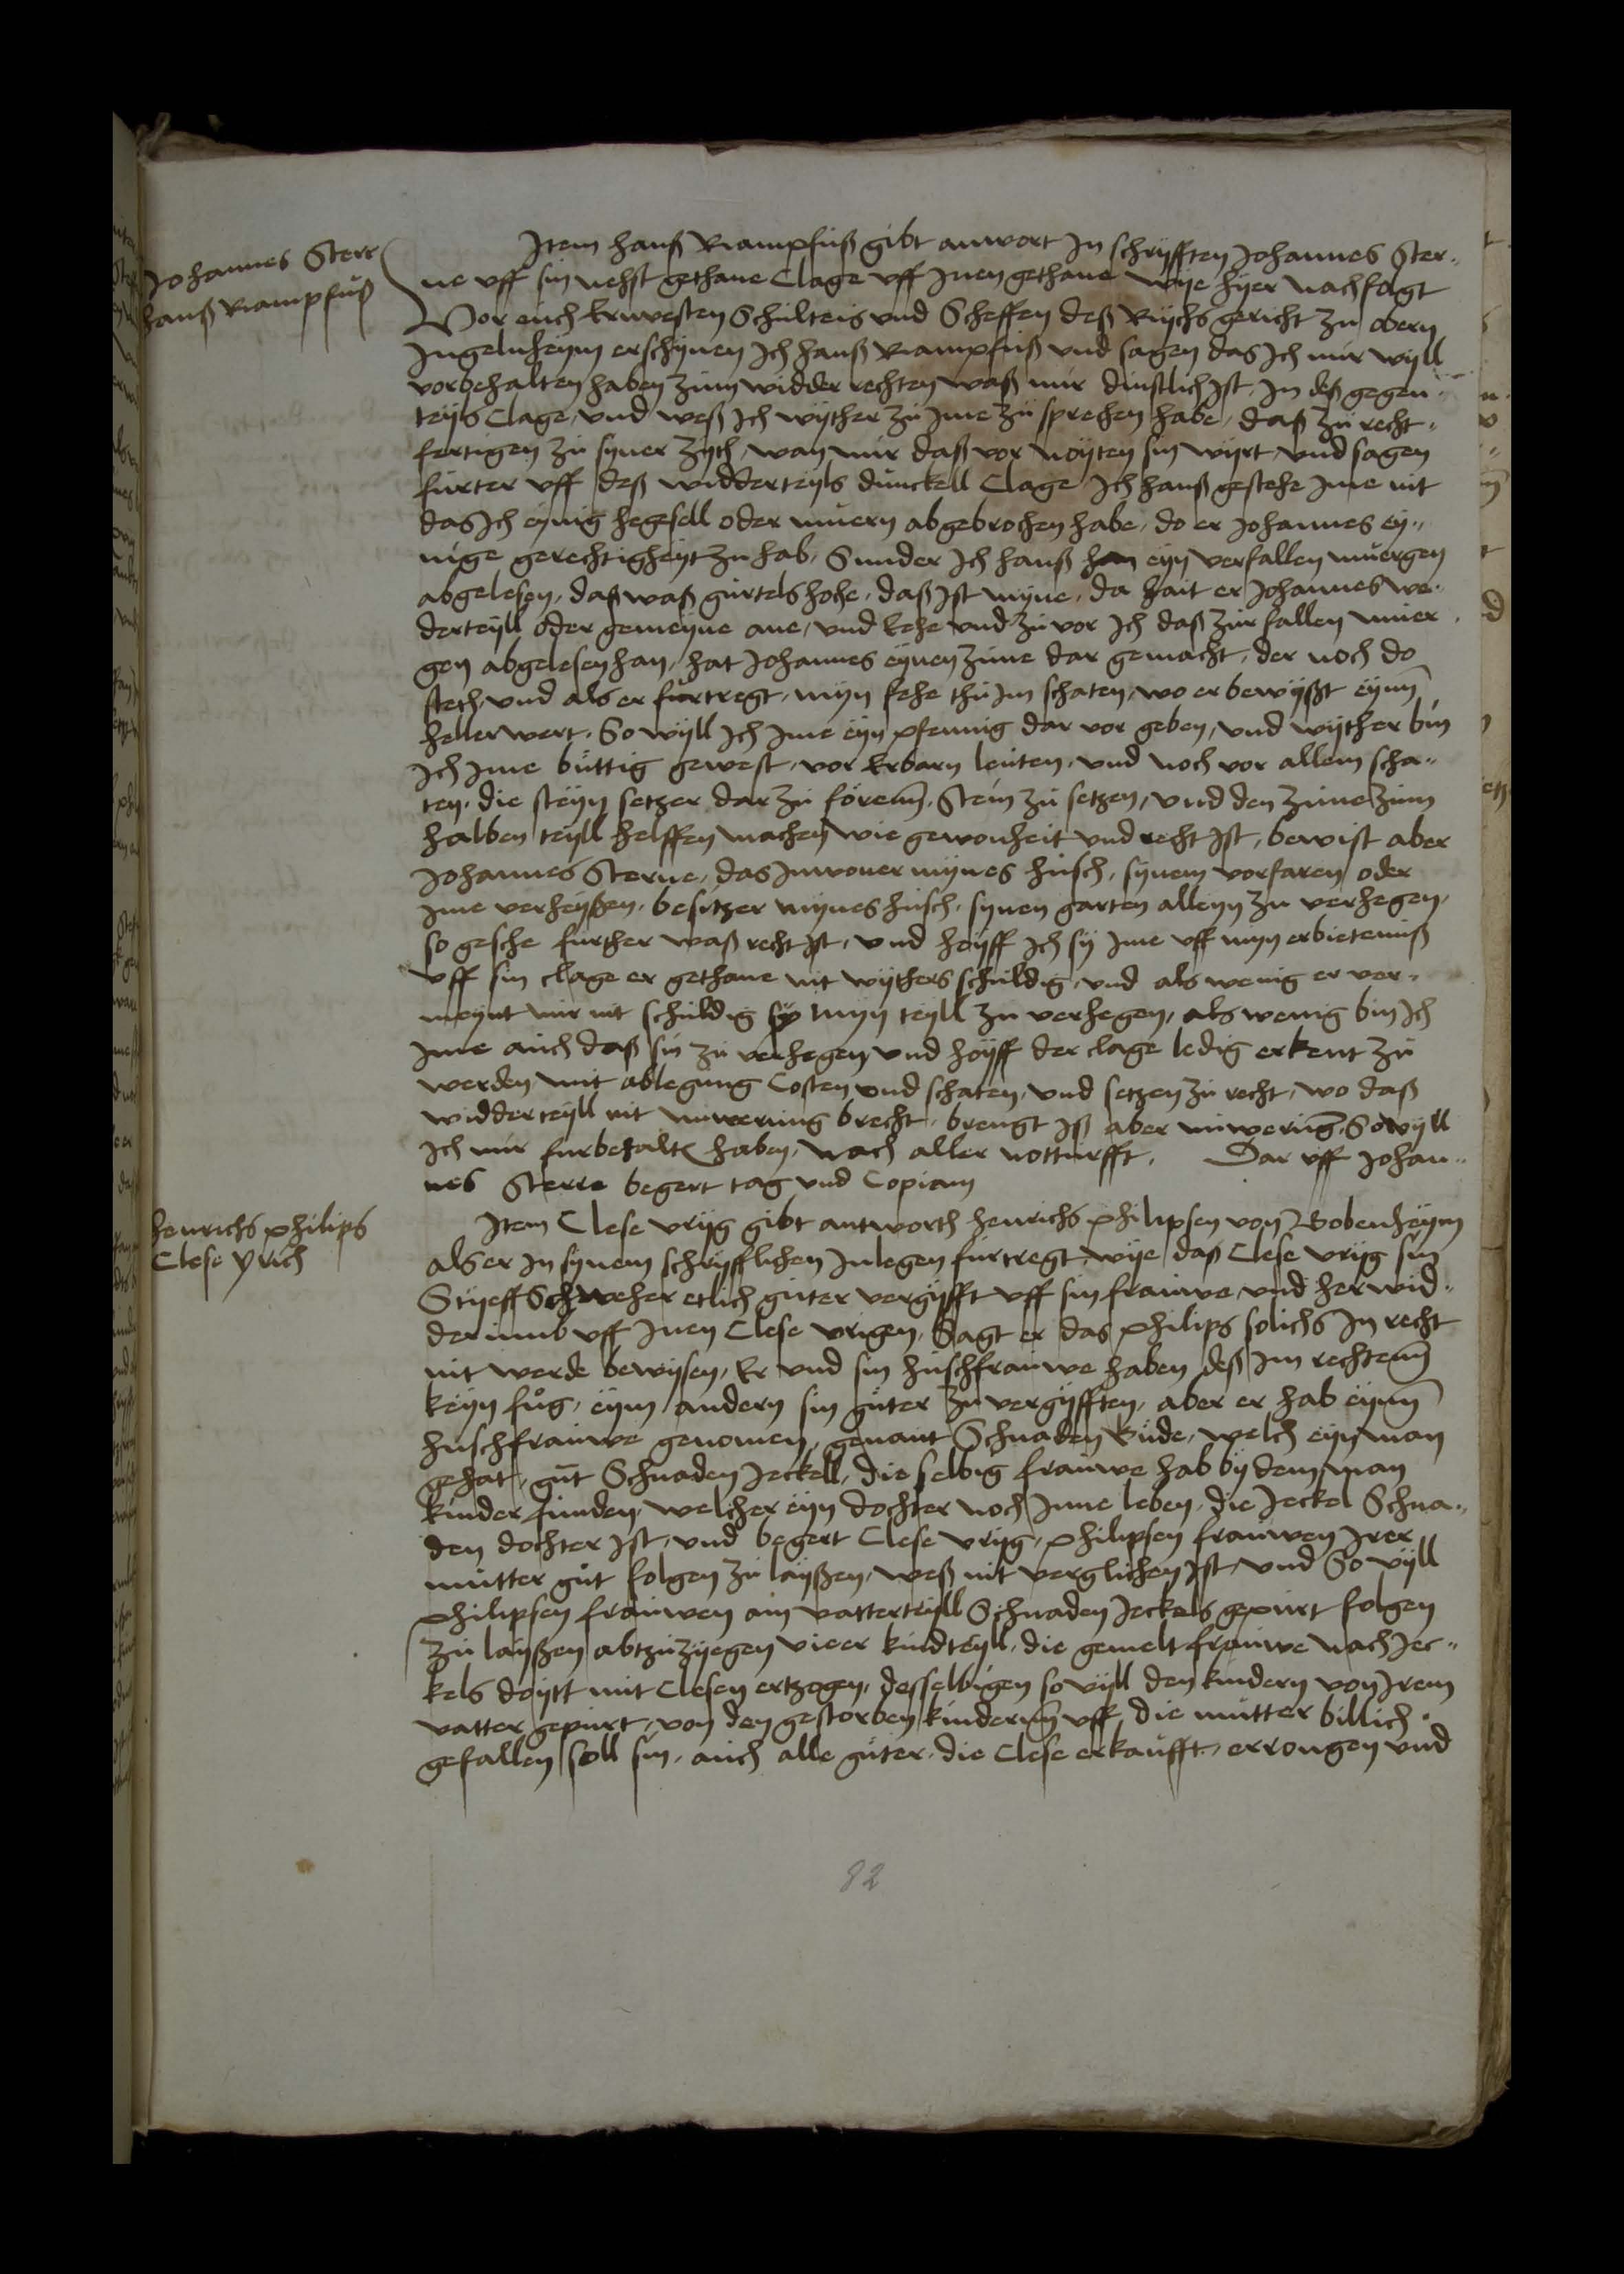 Johannes Sterr
Hanß Rampfuß
Item Hanß Rampfuß gibt anwort Jn schryfften Johannes Ster„
ne vff sin nehst gethane Clage vff Jnen gethane wije hyer nachfolgt
Vor euch Ernvesten Schulteis vnd Scheffen deß Rychs gericht zu obern
Jngelnheym erschynen Jch Hanß Rampfuß vnd sagen das Jch mir wyll
vorbehalten haben zum widder rechten waß mir dinstlich Jst, Jn deß gegen„
teyls Clage, vnd weß Jch wyther zu Jme zu sprechen habe, daß zu recht„
fertigen zu syner Zyth, wan mir daß vor noyten sin wyrt vnd sagen
furter vff deß widderteyls dunckell Clage Jch Hanß gestehe Jme nit
das Jch eynig hegesell oder muern abgebrochen habe, do er Johannes ey„
nige gerechtigheyt zu hab, Sunder Jch Hanß han eyn verfallen muergen
abgelesen, daß waß gurtels hohe, daß Jst myne, da hait er Johannes we„
derteyll oder gemeyne ane, vnd Eehe vnd zuvor Jch daß zur fallen muer
gen abgelesen han, hat Johannes eynen zune dar gemacht, der noch do
steth, vnd als er furtregt, myn fehe thu Jm schaten, wo er bewyßt eynn
heller wert, So wyll Jch Jme eyn pfennig dar vor geben, vnd wyther bin
Jch Jme buttig gewest, vor Erbarn leuten, vnd noch vor allem scha„
ten, die steyn setzer dar zu foren, Stein zu setzen, vnd den zune zum
halben teyll helffen machen wie gewonheit vnd recht Jst, bewist aber
Johannes Sterne, das Jnwoner mynes husch, synem vorfaren oder
Jme verheyßen, besitzer mynes husch, synen garten alleyn zu verhegen,
so geschee further waß recht Jst, vnd hoyff Jch sy Jme vff myn erbieteniß
vff sin clage er gethane nit wythers schuldig, vnd als wenig er ver„
meynt mir nit schuldig sy myn teyll zu verhegen, als wenig bin Jch
Jme auch daß sin zu verhegen vnd hoyff der clage ledig erkent zu
werden, mit ablegung Costen vnd schaten, vnd setzen zu recht, wo daß
widderteyll nit nuwerung brecht, brengt Jß aber nuwerung, So wyll
Jch mir furbehalten haben, nach aller notturfft. Dar vff Johan„
nes Sterre begert tag vnd Copiam
Henrichs Philips
Clese Yrich
Item Clese Vrijg gibt antworth Henrichs Philipsen von Bobenheym
als er Jn synem schryfflichen Jnlegen furtregt, wije daß Clese Vrijg sin
Styeff Schweher etlich guter vergyfft vff sin frauwe vnd her wid„
derumb vff Jnen Clese Vrigen, Sagt er das Philips solichs Jn recht
nit werde bewysen, Er vnd sin huschfrauwe haben deß Jm rechten
keyn fug, eym andern sin guter zu vergyfften, aber er hab eynn
huschfrauwe genomen, genant Schnaden Kude, welch eyn man
gehat, gnt Schnaden Jeckell, die selbig frauwe hab by dem man
kinder funden, welcher eyn dochter noch Jnne leben, die Jeckel Schna„
den dochter Jst, vnd begert Clese Vrijg, Philipsen frauwen Jrer
mutter gut folgen zu layßen, weß nit verglichen Jst, vnd So vyll
Philipsen frauwen ain vatterteyll Schnaden Jeckels gepurt folgen
zu layßen abtzuzyegen vieer kindteyll, die gemelt frauwe nach Jec„
kels doytt mit Clesen ertzogen, desselbigen so vyll den kindern von Jrem
vatter gepurt, von den gestorben kindernn vff die mutter billich
gefallen soll sin, auch alle guter, die Clese erkaufft, errongen vnd
82